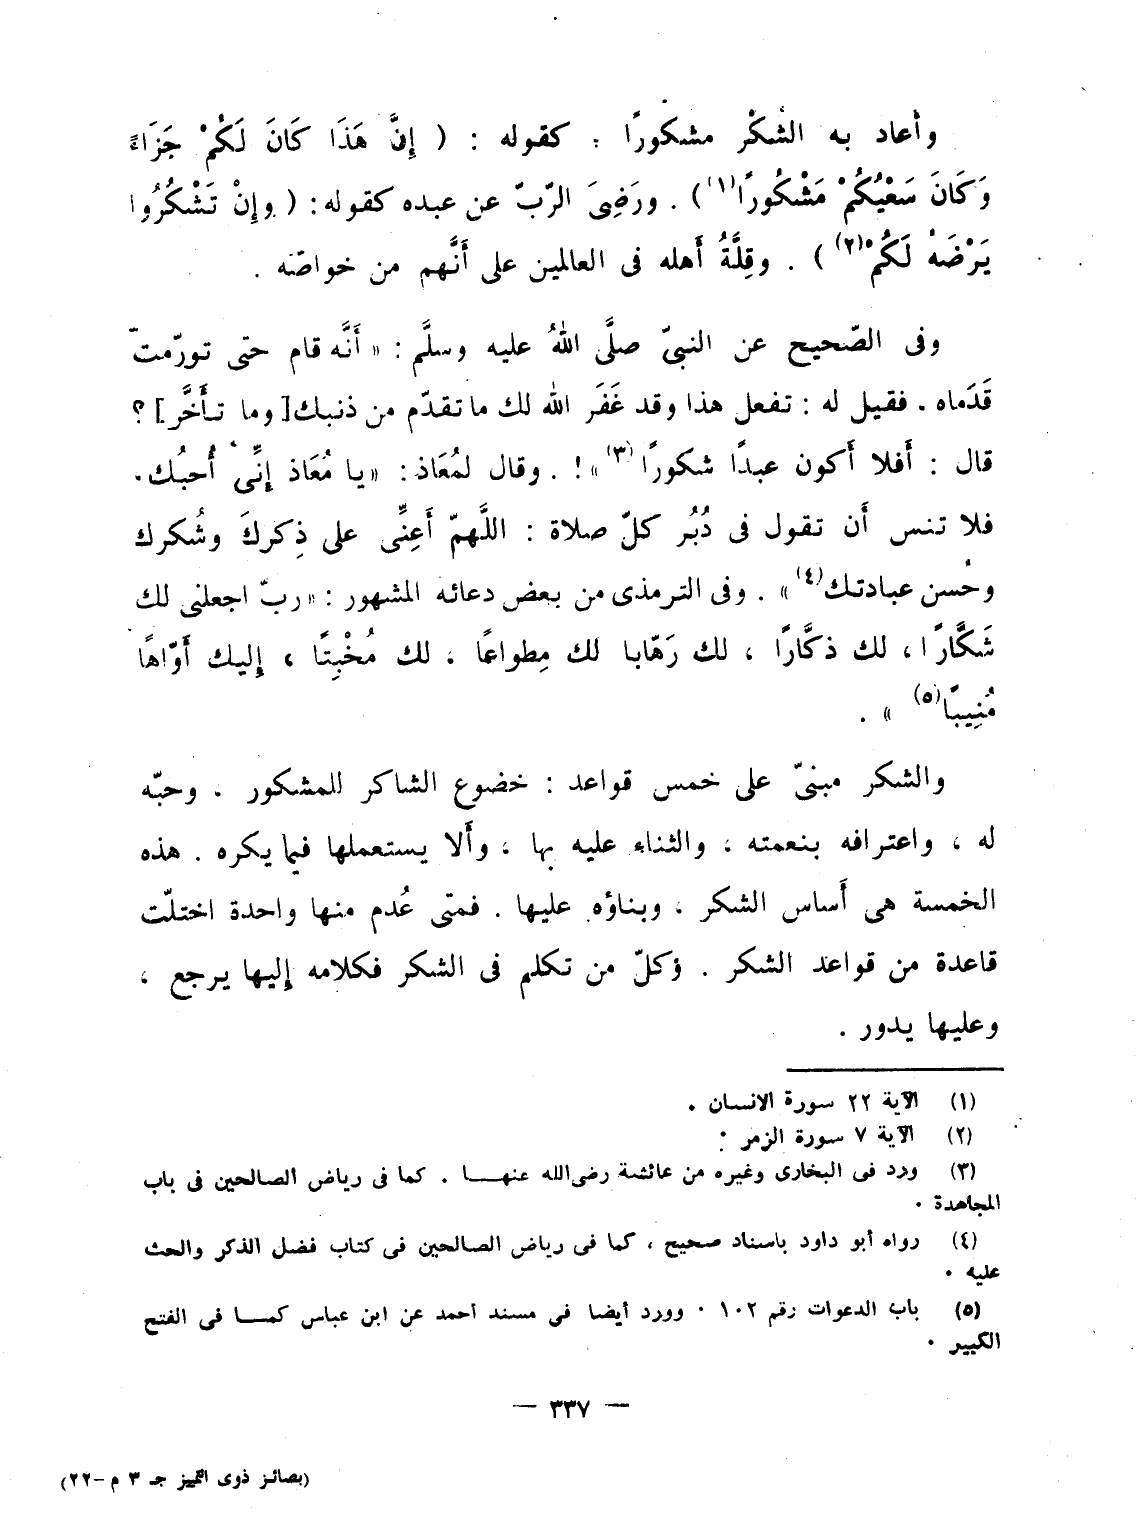 وأعاد به الشكْر مشكورًا ، كقوله : ( إِنَّ هَذَا كَانَ لَكُمْ جَزَاءً
وَكَانَ سَعْيُكُمْ مَشْكُورًا(١) ) . ورَضِىَ الرّبّ عن عبده كقوله : ( وإِنْ تَشْكُرُوا
يَرْضَهْ لَكُمْ(٢) ) . وقِلَّةُ أَهله فى العالمين على أَنَّهم من خواصّه .
وفى الصّحيح عن النبىّ صلَّى اللهُ عليه وسلَّم : « أَنَّه قام حتى تورّمتْ
قَدَماه . فقيل له : تفعل هذا وقد غَفَر الله لك ما تقدّم من ذنبك [ وما تأَخَّر ] ؟
قال : أَفلا أَكون عبدًا شكورًا(٣) » ! . وقال لمُعَاذ : « يا مُعَاذ إِنِّى أُحبُك .
فلا تنس أَن تقول فى دُبُر كلّ صلاة : اللَّهمّ أَعِنِّى على ذِكركَ وشُكرك
وحُسن عبادتك(٤) » . وفى الترمذى من بعض دعائه المشهور : « ربّ اجعلنى لك
شَكَّارًا ، لك ذكَّارًا ، لك رَهّابا لك مِطواعًا ، لك مُخْبِتًا ، إِليك أَوّاهًا
مُنِيبًا(٥) » .
والشكر مبنىّ على خمس قواعد : خضوع الشاكر للمشكور ، وحبّه
له ، واعترافه بنعمته ، والثناء عليه بها ، وأَلا يستعملها فيما يكره . هذه
الخمسة هى أَساس الشكر ، وبناؤه عليها . فمتى عُدم منها واحدة اختلّت
قاعدة من قواعد الشكر . وكلّ من تكلم فى الشكر فكلامه إِليها يرجع ،
وعليها يدور .
(١) الآية ٢٢ سورة الانسان .
(٢) الآية ٧ سورة الزمر .
(٣) ورد فى البخارى وغيره من عائشة رضى الله عنهـــا . كما فى رياض الصالحين فى باب
المجاهدة .
(٤) رواه أبو داود باسناد صحيح ، كما فى رياض الصالحين فى كتاب فضل الذكر والحث
عليه .
(٥) باب الدعوات رقم ١٠٢ . وورد أيضا فى مسند أحمد عن ابن عباس كمـــا فى الفتح
الكبير .
— ٣٣٧ —
(بصائر ذوى التمييز جـ ٣ م –٢٢)